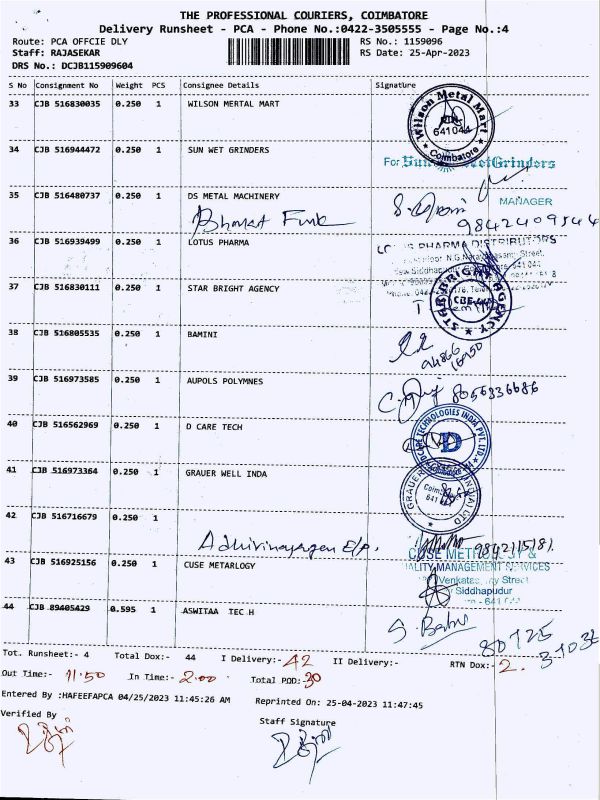 THE PROFESSIONAL COURIERS, COIMBATORE
Delivery Runsheet - PCA - Phone No.:0422-3505555 - Page No.:4
Route: PCA OFFCIE DLY RS No.: 1159096
Staff: RAJASEKAR RS Date: 25-Apr-2023
DRS No.: DCJB115909604
S No Consignment No Weight PCS Consignee Details Signature
33 CJB 516830035 0.250 1 WILSON MERTAL MART
Wilson Metal Mart
641044
Coimbatore
34 CJB 516944472 0.250 1 SUN WET GRINDERS
For Sun Wet Grinders
35 CJB 516480737 0.250 1 DS METAL MACHINERY
MANAGER
Bharat
9842409544
36 CJB 516939499 0.250 1 LOTUS PHARMA
PHARMA DISTRIBUTORS
37 CJB 516830111 0.250 1 STAR BRIGHT AGENCY
STAR BRIGHT AGENCY
38 CJB 516805535 0.250 1 BAMINI
39 CJB 516973585 0.250 1 AUPOLS POLYMNES
8056836686
40 CJB 516562969 0.250 1 D CARE TECH
DCARE TECHNOLOGIES INDIA PVT. LTD.
D
41 CJB 516973364 0.250 1 GRAUER WELL INDA
GRAUER
42 CJB 516716679 0.250 1
Adhivinayagan E/p. 9842115181
43 CJB 516925156 0.250 1 CUSE METARLOGY
CUSE
QUALITY MANAGEMENT SERVICES
Street
Siddhapudur
44 CJB 89405429 0.595 1 ASWITAA TEC H
S. Babu
80725
31036
Tot. Runsheet:- 4 Total Dox:- 44 I Delivery:- 42 II Delivery:- RTN Dox:- 2.
Out Time:- 11.50 In Time:- 2.00 Total POD:- 30
Entered By :HAFEEFAPCA 04/25/2023 11:45:26 AM Reprinted On: 25-04-2023 11:47:45
Verified By Staff Signature